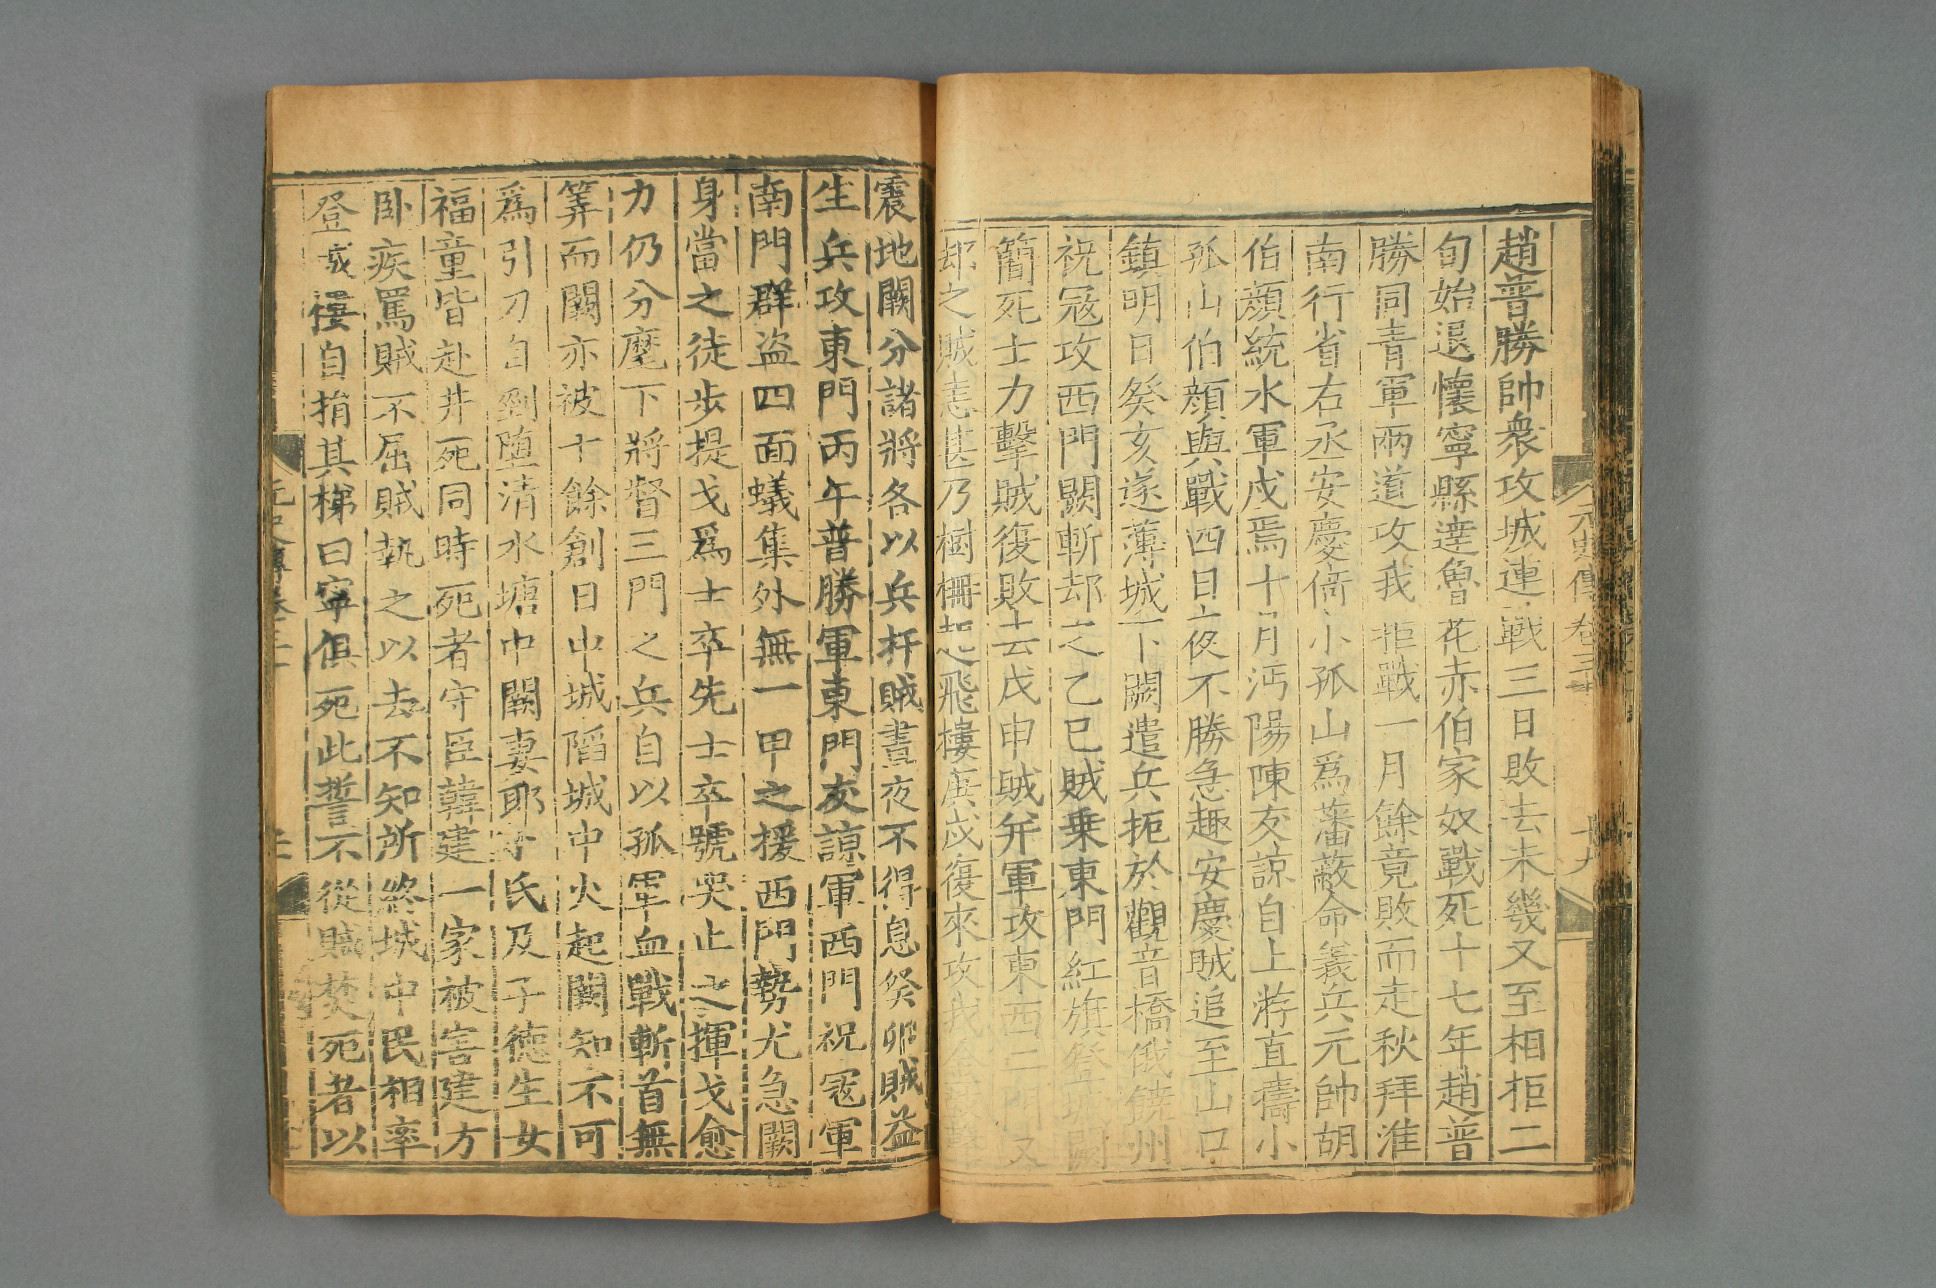 元史傳卷三十
趙普勝帥衆攻城連戰三日敗去未幾又至相拒二
旬始退懷寧縣達魯花赤伯家奴戰死十七年趙普
勝同青軍兩道攻我拒戰一月餘竟敗而走秋拜淮
南行省右丞安慶倚小孤山爲藩蔽命義兵元帥胡
伯顔統水軍戍焉十月沔陽陳友諒自上游直擣小
孤山伯顔與戰四日夜不勝急趣安慶賊追至山口
鎮明日癸亥遂薄城下闕遣兵扼於觀音橋俄饒州
祝冦攻西門闕斬却之乙巳賊乗東門紅旗登城闕
簡死士力擊賊復敗去戊申賊并軍攻東西二門又
却之賊恚甚乃樹柵起飛樓庚戌復來攻我
震地闕分諸將各以兵扞賊晝夜不得息癸卯賊益
生兵攻東門丙午普勝軍東門友諒軍西門祝冦軍
南門群盗四面蟻集外無一甲之援西門勢尤急闕
身當之徒步提戈爲士卒先士卒號哭止之揮戈愈
力仍分麾下將督三門之兵自以孤軍血戰斬首無
筭而闕亦被十餘創日中城陷城中火起闕知不可
爲引刀自剄墮清水塘中闕妻耶卜氏及子德生女
福童皆赴井死同時死者守臣韓建一家被害建方
卧疾罵賊不屈賊執之以去不知所終城中民相率
登城樓自捐其梯曰寧俱死此誓不從賊焚死者以